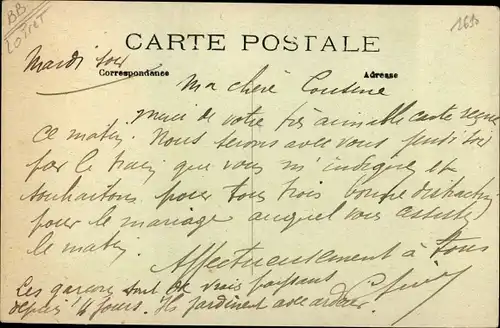 BB
Loiret
1690
CARTE POSTALE
Mardi soir
Correspondance
Adresse
Ma chère Cousine
Merci de votre très aimable carte reçue
ce matin. Nous serons avec vous jeudi
par le train que vous m'indiquez et
souhaitons pour tous trois bonne distraction
pour le mariage auquel vous assistez
le matin.
Affectueusement à tous
Ces garçons sont de vrais paysans
depuis 4 jours. Ils jardinent avec ardeur.